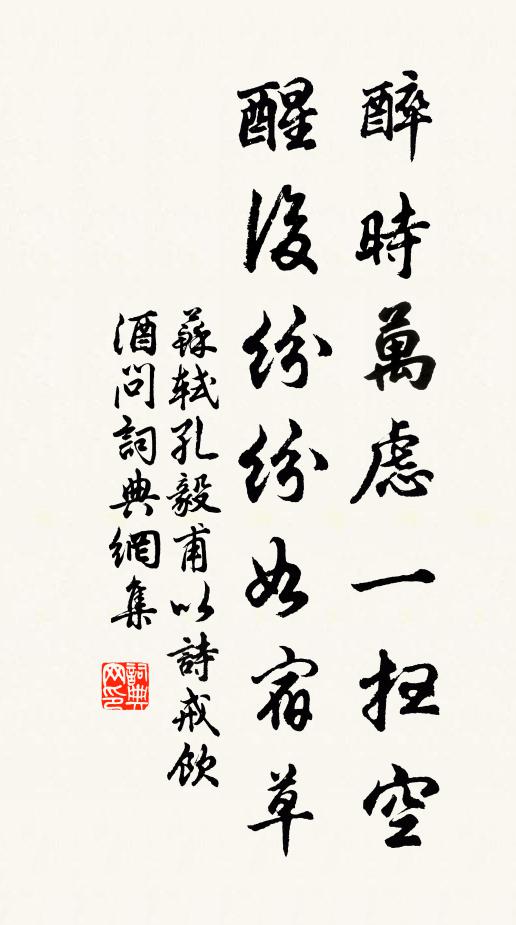 醉時萬慮一掃空
醒後紛紛如宿草
蘇軾孔毅甫以詩戒飲
酒問詞典網集
詞典
网印